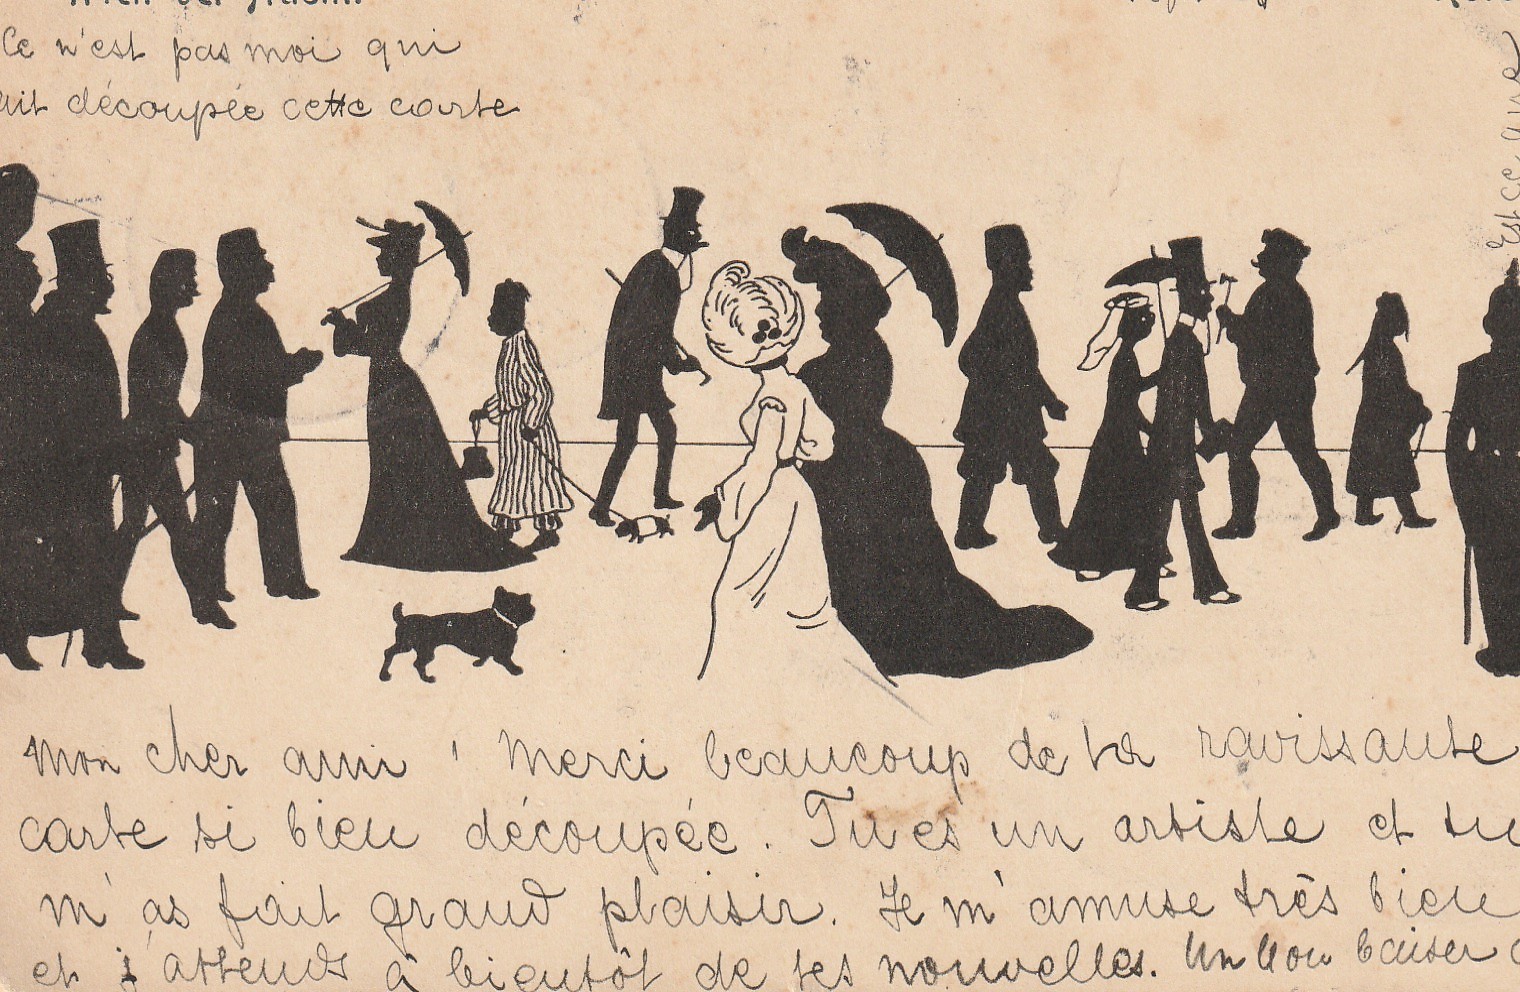 Ce n'est pas moi qui
ait découpée cette carte
Est ce que
Mon cher ami ! Merci beaucoup de ta ravissante
carte si bien découpée. Tu es un artiste et tu
m'as fait grand plaisir. Je m'amuse très bien
et j'attends à bientôt de tes nouvelles. Un bon baiser